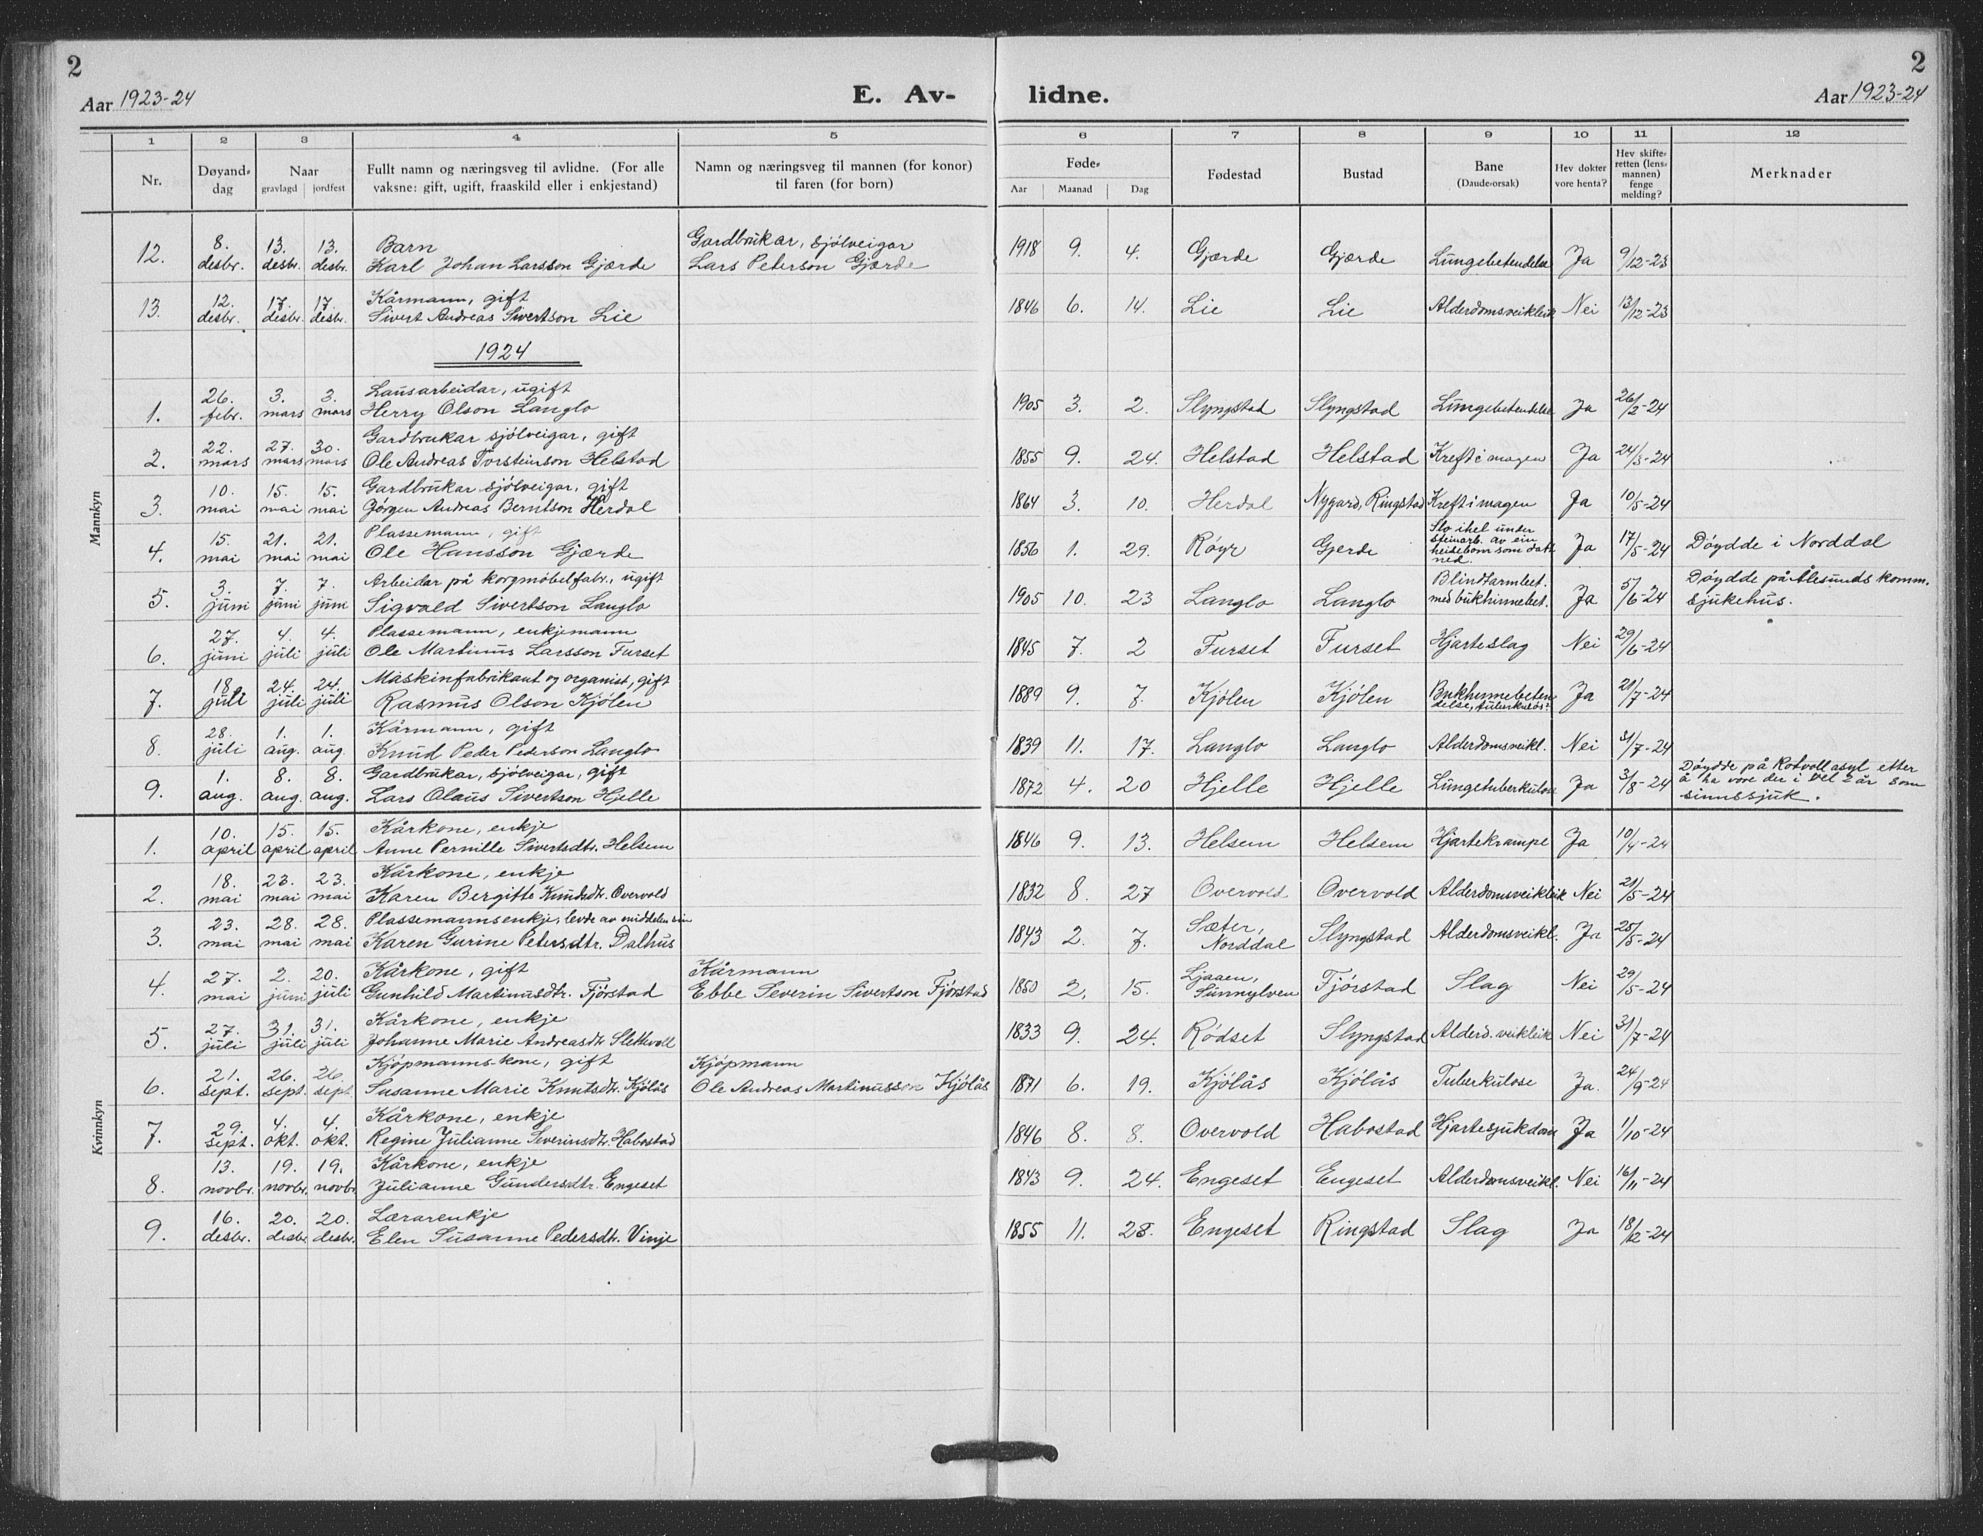 2
2
Aar 1923-24
E. Av-
lidne.
Aar 1923-24
1 2 3 4 5 6 7 8 9 10 11 12
Nr.
Døyand-
dag
Naar
gravlagd jordfest
Fullt namn og næringsveg til avlidne. (For alle
vaksne: gift, ugift, fraaskild eller i enkjestand)
Namn og næringsveg til mannen (for konor)
til faren (for born)
Føde-
Aar Maanad Dag
Fødestad
Bustad
Bane
(Daude-orsak)
Hev dokter
vore henta?
Hev skifte-
retten (lens-
mannen)
fenge
melding?
Merknader
Mannkyn
8. 13. 13. Barn Gardbrukar, sjølveigar
12. desbr. desbr. desbr. Karl Johan Larsson Gjærde Lars Peterson Gjærde 1918 9. 4. Gjærde Gjærde Lungebetendelse Ja 9/12-23
12. 17. 17. Kårmann, gift
13. desbr. desbr. desbr. Sivert Andreas Sivertson Lie 1846 6. 14. Lie Lie Alderdomsveikleik Nei 13/12-23
1924
26. 3. 3. Lausarbeidar, ugift
1. febr. mars mars Herry Olson Langlo 1905 3. 2. Slyngstad Slyngstad Lungebetendelse Ja 26/2-24
22. 27. 30. Gardbrukar sjølveigar, gift
2. mars mars mars Ole Andreas Torsteinson Helstad 1855 9. 24. Helstad Helstad Kreft i magen Ja 24/3-24
10. 15. 15. Gardbrukar sjølveigar, gift
3. mai mai mai Jørgen Andreas Berntson Herdal 1864 3. 10. Herdal Nygard, Ringstad Kreft i magen Ja 10/5-24
15. 21. 21. Plassemann, gift
4. mai mai mai Ole Hansson Gjærde 1856 1. 29. Røyr Gjerde Slo ihel under
steinarb. av ein
heisebom som datt
ned. Ja 17/5-24 Døydde i Norddal
3. 7. 7. Arbeidar på korgmøbelfabr., ugift
5. juni juni juni Sigvald Sivertson Langlo 1905 10. 23 Langlo Langlo Blindtarmbet.
med bukhinnebet. Ja 5/6-24 Døydde på Ålesunds komm.
sjukehus.
27. 4. 4. Plassemann, enkjemann
6. juni juli juli Ole Martinus Larsson Furset 1845 7. 2 Furset Furset Hjarteslag Nei 29/6-24
18. 24. 24. Maskinfabrikant og organist, gift
7. juli juli juli Rasmus Olson Kjølen 1889 9. 7. Kjølen Kjølen Bukhinnebeten
delse, tuberkuløs? Ja 21/7-24
28. 1. 1. Kårmann, gift
8. juli aug. aug. Knud Peder Pederson Langlo 1839 11. 17. Langlo Langlo Alderdomsveikl. Nei 31/7-24
1. 8. 8. Gardbrukar, sjølveigar, gift
9. aug. aug. aug. Lars Olaus Sivertson Hjelle 1872 4. 20 Hjelle Hjelle Lungetuberkulose Ja 3/8-24 Døydde på Rotvoll asyl etter
å ha vore der i vel 2 år som
sinnssjuk.
Kvinnkyn
10. 15. 15. Kårkone, enkje
1. april april april Anne Pernille Sivertsdtr. Helsem 1846 9. 13. Helsem Helsem Hjartekrampe Ja 10/4-24
18. 23. 23. Kårkone, enkje
2. mai mai mai Karen Bergitte Knudsdtr. Overvold 1832 8. 27 Overvold Overvold Alderdomsveikleik Nei 21/5-24
23. 28. 28. Plassemannsenkje, levde av midlane sine
3. mai mai mai Karen Gurine Petersdtr. Dalhus 1843 2. 7. Sæter,
Norddal Slyngstad Alderdomsveikl. Ja 25/5-24
27. 2. 20. Kårkone, gift Kårmann
4. mai juni juli Gunhild Martinusdtr. Fjørstad Ebbe Severin Sivertson Fjørstad 1850 2. 15. Ljøaen,
Sunnylven Fjørstad Slag Nei 29/5-24
27. 31. 31. Kårkone, enkje
5. juli juli juli Johanne Marie Andreasdtr Slettvoll 1833 9. 24. Rødset Slyngstad Alderd.veikleik Nei 31/7-24
21. 26. 26. Kjøpmannskone, gift Kjøpmann
6. sept. sept. sept. Susanne Marie Knutsdtr. Kjølås Ole Andreas Martinusson Kjølås 1871 6. 19. Kjølås Kjølås Tuberkulose Ja. 24/9-24
29. 4. 4. Kårkone, enkje
7. sept. okt. okt. Regine Julianne Severinsdtr. Habostad 1846 8. 8. Overvold Habostad Hjartesjukdom Ja 1/10-24
13. 19. 19. Kårkone, enkje
8. novbr. novbr. novbr. Julianne Gundersdtr. Engeset 1843 9. 24. Engeset Engeset Alderdomsveikl. Nei 16/11-24
16. 20. 20. Lærarenkje
9. desbr. desbr. desbr. Elen Susanne Pedersdtr. Vinje 1855 11. 28. Engeset Ringstad Slag Ja 18/12-24